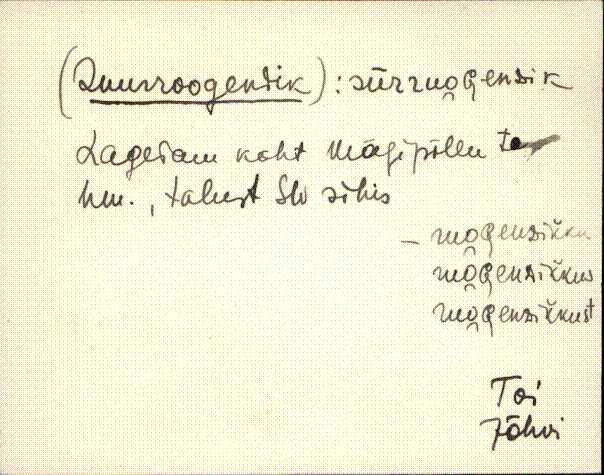 (Suurroogendik) : sūrruo̭G̬enDik
Lagedam koht Mägipõllu
hm., talust SW sihis
– ruo̭G̬enDikku
ruo̭G̬enDikkus
ruo̭G̬enDikkust
Toi
Jõhvi